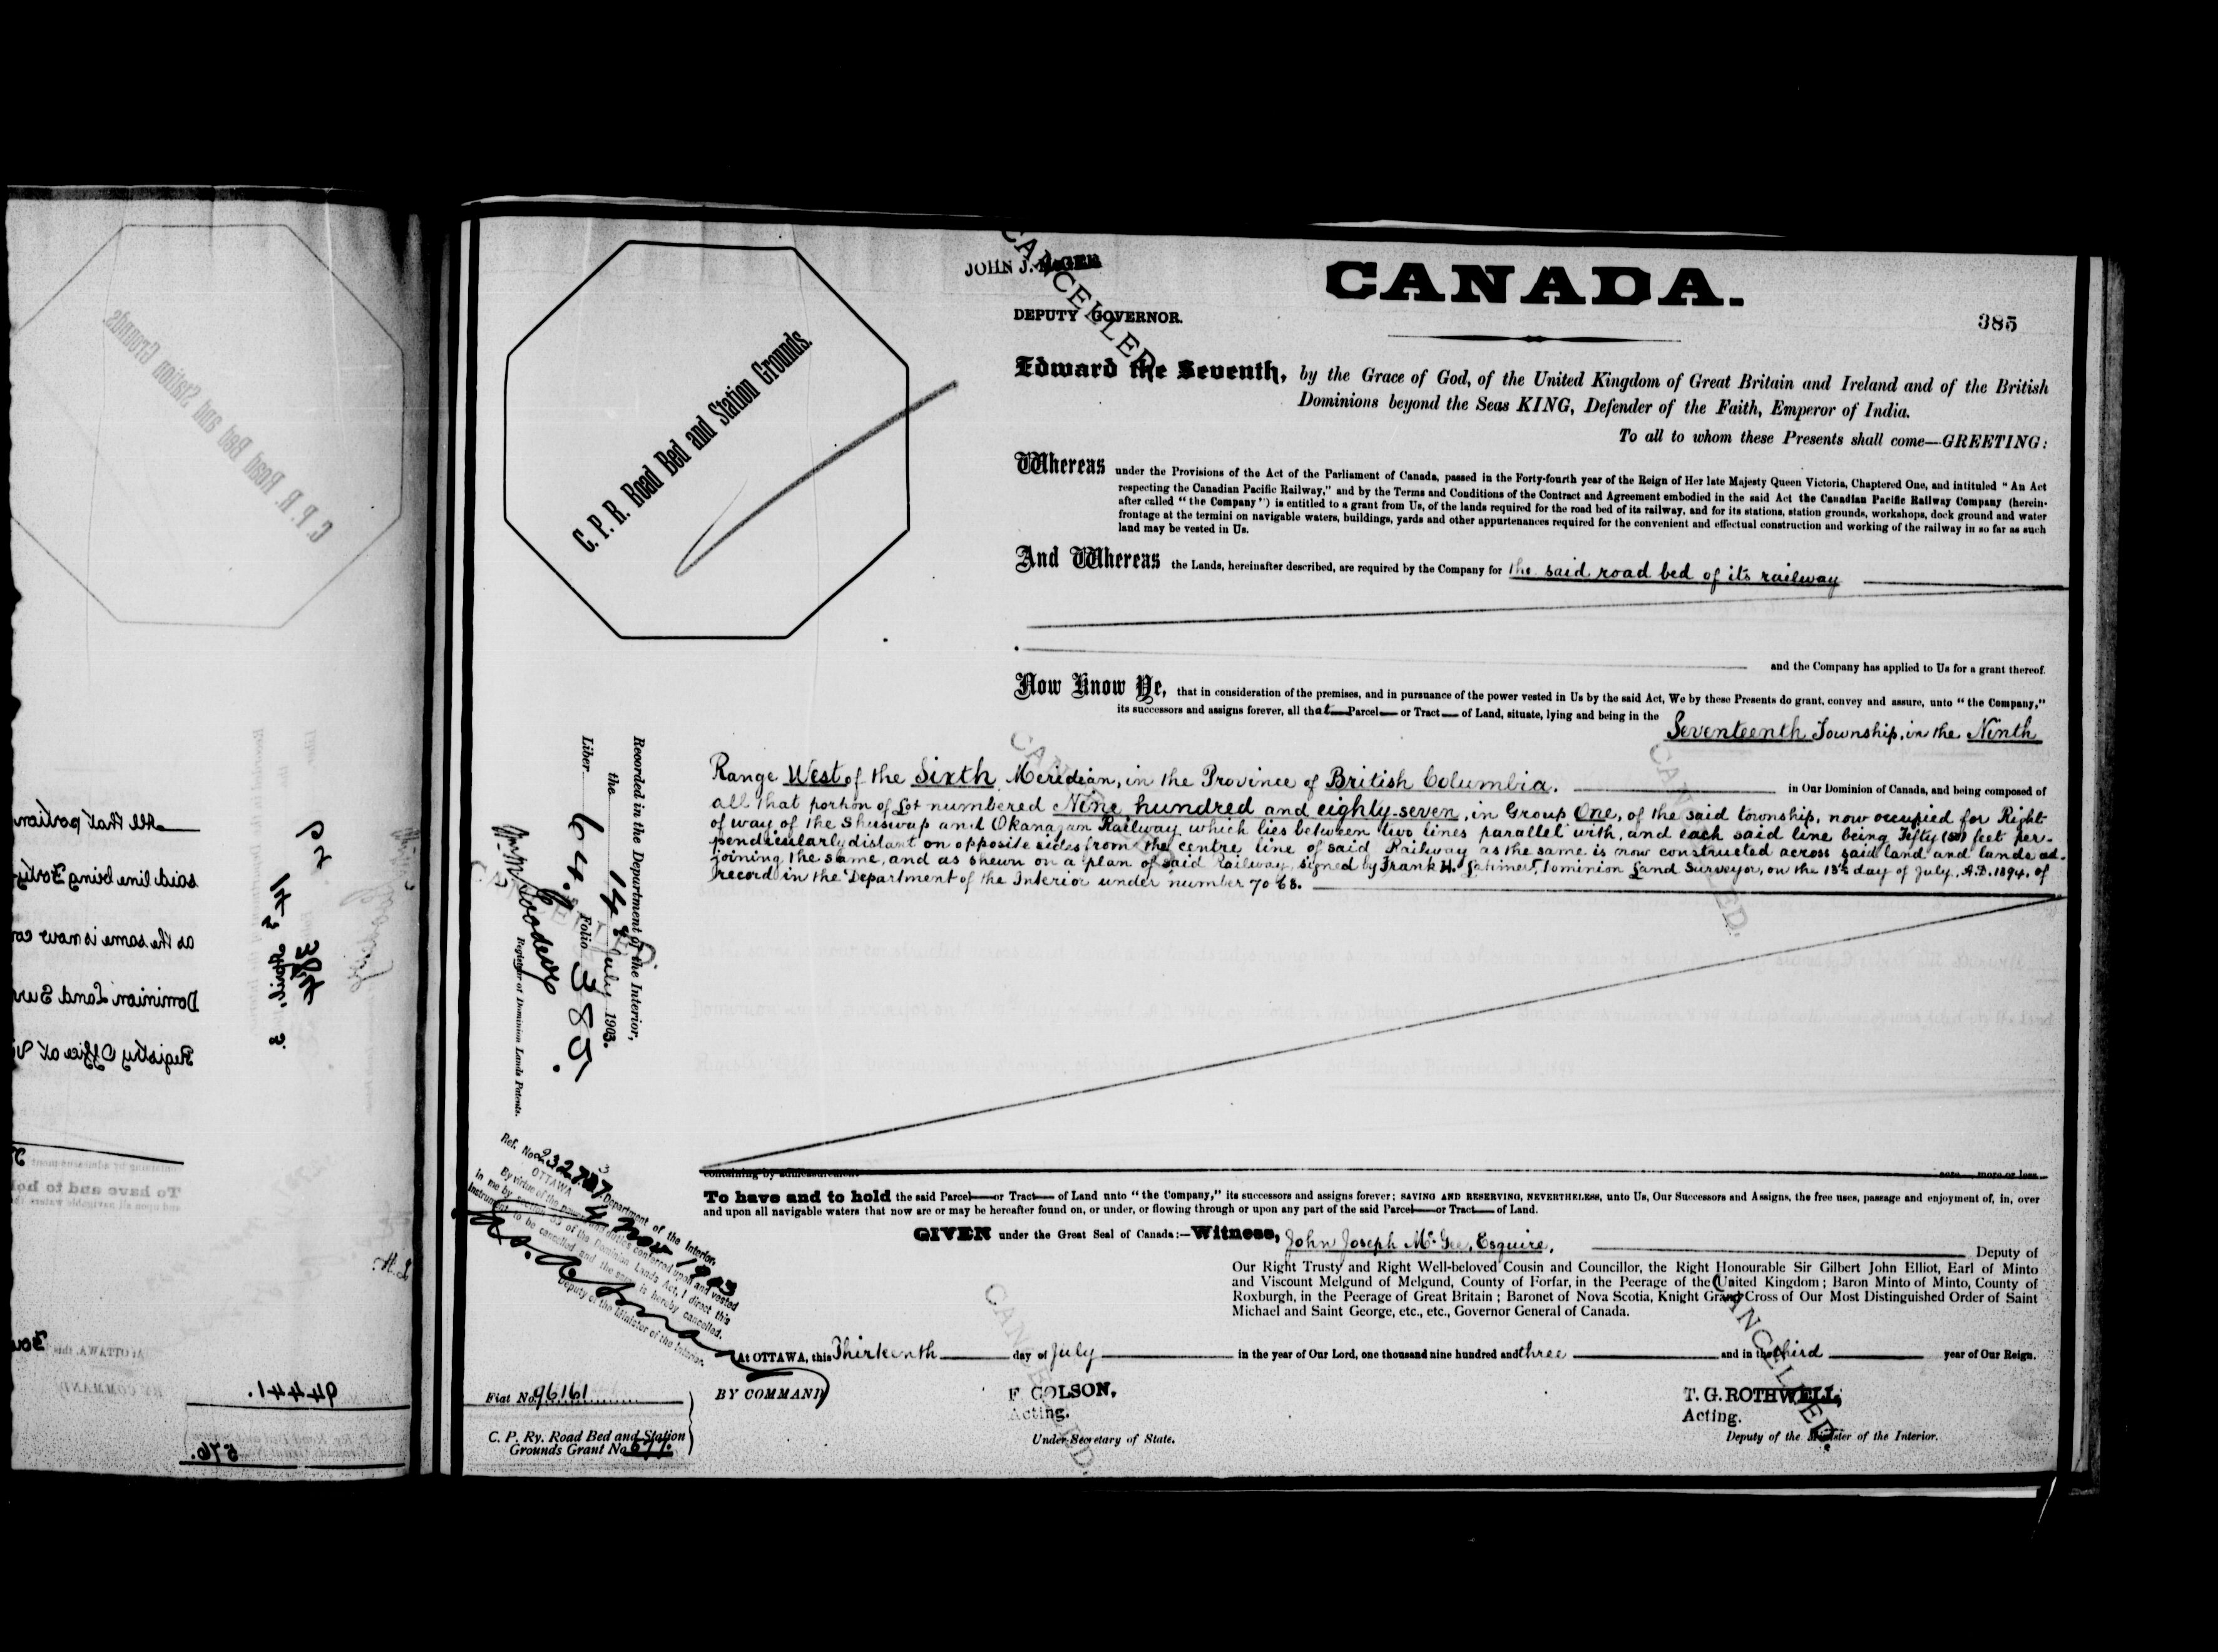 JOHN J. McGEE
CANCELLED
DEPUTY GOVERNOR.
CANADA.
385
C. P. R. Road Bed and Station Grounds.
Edward the Seventh, by the Grace of God, of the United Kingdom of Great Britain and Ireland and of the British
Dominions beyond the Seas KING, Defender of the Faith, Emperor of India.
To all to whom these Presents shall come—GREETING:
Whereas under the Provisions of the Act of the Parliament of Canada, passed in the Forty-fourth year of the Reign of Her late Majesty Queen Victoria, Chaptered One, and intituled "An Act
respecting the Canadian Pacific Railway," and by the Terms and Conditions of the Contract and Agreement embodied in the said Act the Canadian Pacific Railway Company (herein-
after called "the Company") is entitled to a grant from Us, of the lands required for the road bed of its railway, and for its stations, station grounds, workshops, dock ground and water
frontage at the termini on navigable waters, buildings, yards and other appurtenances required for the convenient and effectual construction and working of the railway in so far as such
land may be vested in Us.
And Whereas the Lands, hereinafter described, are required by the Company for the said road bed of its railway
and the Company has applied to Us for a grant thereof.
Now Know Ye, that in consideration of the premises, and in pursuance of the power vested in Us by the said Act, We by these Presents do grant, convey and assure, unto "the Company,"
its successors and assigns forever, all that Parcel or Tract of Land, situate, lying and being in the Seventeenth Township, in the Ninth
Range West of the Sixth Meridian, in the Province of British Columbia. in Our Dominion of Canada, and being composed of
all that portion of Lot numbered Nine hundred and eighty-seven, in Group One, of the said township, now occupied for Right
of way of the Shuswap and Okanagan Railway which lies between two lines parallel with, and each said line being Fifty (50) feet per-
pendicularly distant on opposite sides from the centre line of said Railway as the same is now constructed across said land and lands ad-
joining the same, and as shewn on a plan of said Railway, signed by Frank H. Latimer, Dominion Land Surveyor, on the 13th day of July, A.D. 1894, of
record in the Department of the Interior under number 7068.
containing by admeasurement acre more or less.
To have and to hold the said Parcel or Tract of Land unto "the Company," its successors and assigns forever; SAVING AND RESERVING, NEVERTHELESS, unto Us, Our Successors and Assigns, the free uses, passage and enjoyment of, in, over
and upon all navigable waters that now are or may be hereafter found on, or under, or flowing through or upon any part of the said Parcel or Tract of Land.
GIVEN under the Great Seal of Canada:—Witness, John Joseph McGee, Esquire, Deputy of
Our Right Trusty and Right Well-beloved Cousin and Councillor, the Right Honourable Sir Gilbert John Elliot, Earl of Minto
and Viscount Melgund of Melgund, County of Forfar, in the Peerage of the United Kingdom; Baron Minto of Minto, County of
Roxburgh, in the Peerage of Great Britain; Baronet of Nova Scotia, Knight Grand Cross of Our Most Distinguished Order of Saint
Michael and Saint George, etc., etc., Governor General of Canada.
At OTTAWA, this Thirteenth day of July in the year of Our Lord, one thousand nine hundred and three and in the third year of Our Reign.
BY COMMAND
F. COLSON,
Acting.
Under-Secretary of State.
T. G. ROTHWELL,
Acting.
Deputy of the Minister of the Interior.
Recorded in the Department of the Interior,
the 14th July 1903.
Liber 64. Folio 385.
Registrar of Dominion Lands Patents.
CANCELLED.
CANCELLED.
CANCELLED.
CANCELLED.
Ref. No. Department of the Interior,
OTTAWA 4 Nov 1903
By virtue of the power and duties conferred upon and vested
in me by section 33 of the Dominion Lands Act, I direct this
Instrument to be cancelled and the same is hereby cancelled.
Deputy of the Minister of the Interior.
Fiat No. 96161
C. P. Ry. Road Bed and Station
Grounds Grant No. 577.
C. P. R. Road Bed and Station Grounds
All that portion
said line being Forty
as the same is now con
Dominion Land Surv
Registry Office at
To have and to hol
At OTTAWA, this
BY COMMAND
94441.
576.